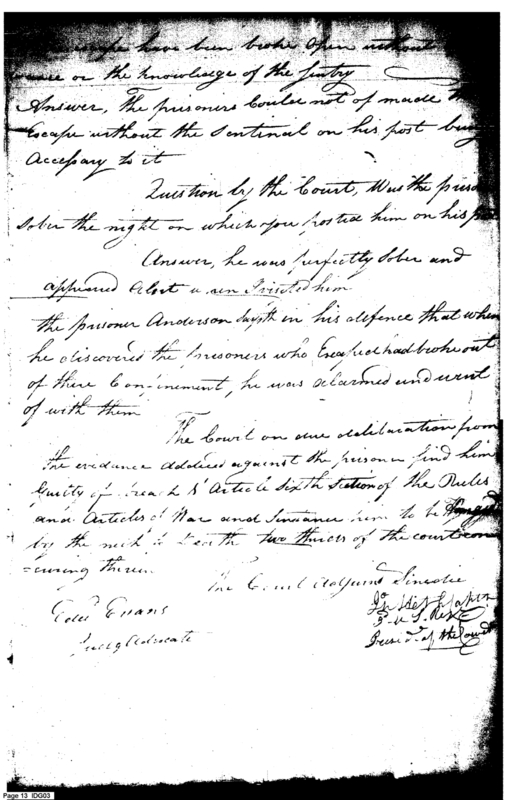 have been broke open without
or the knowledge of the Sentry
Answer, The prisoners Could not of made
Escape without the Sentinal on his post being
accessary to it
Question by the Court, Was the
Sober the night on which you posted him on his
Answer, he was perfectly Sober and
appeared Alert when I visited him
the prisoner Anderson Sayeth in his defence that when
he discovered the prisoners who Escaped had broke out
of there Confinement, he was alarmed and went
of with them
The Court on due deliberation from
the evidance adduced against the prisoner find him
Guilty of breach Article Sixth Section of the Rules
and Articles of War and Sentance him to be hanged
by the neck to Death two thirds of the court con
=curing therein
The Court Adjourns Sinedie
Edwd Evans
Judge Advocate
Presidt of the Court
Page 13 IDG03